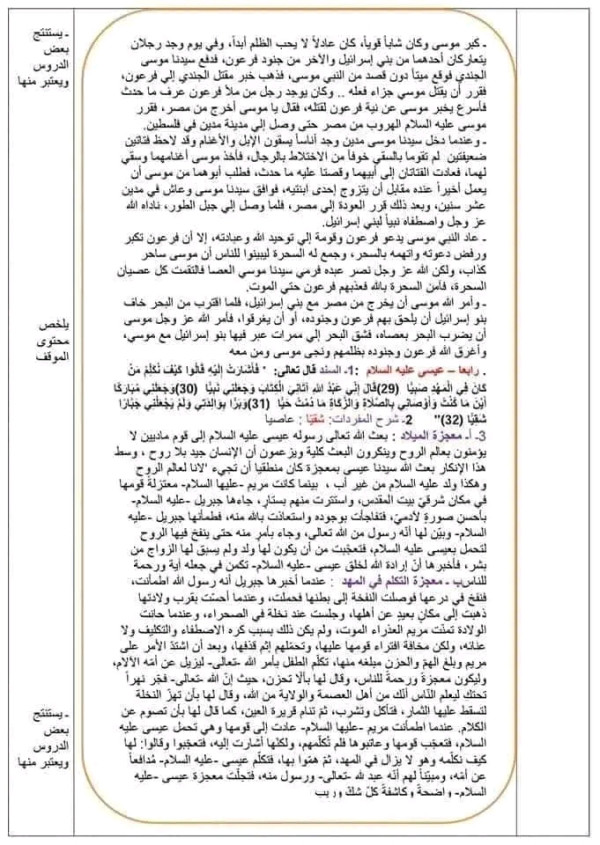 ـ كبر موسى وكان شاباً قوياً، كان عادلاً لا يحب الظلم أبداً، وفي يوم وجد رجلان
يتعاركان أحدهما من بني إسرائيل والآخر من جنود فرعون، فدفع سيدنا موسى
الجندي فوقع ميتاً دون قصد من النبي موسى، فذهب خبر مقتل الجندي إلي فرعون،
فقرر أن يقتل موسي جزاء فعله .. وكان يوجد رجل من ملأ فرعون عرف ما حدث
فأسرع يخبر موسى عن نية فرعون لقتله، فقال يا موسى أخرج من مصر، فقرر
موسى عليه السلام الهروب من مصر حتى وصل إلي مدينة مدين في فلسطين.
ـ وعندما دخل سيدنا موسى مدين وجد أناساً يسقون الإبل والأغنام وقد لاحظ فتاتين
ضعيفتين لم تقوما بالسقي خوفاً من الاختلاط بالرجال، فأخذ موسى أغنامهما وسقي
لهما، فعادت الفتاتان إلى أبيهما وقصتا عليه ما حدث، فطلب أبوهما من موسى أن
يعمل أخيراً عنده مقابل أن يتزوج إحدى ابنتيه، فوافق سيدنا موسى وعاش في مدين
عشر سنين، وبعد ذلك قرر العودة إلي مصر، فلما وصل إلي جبل الطور، ناداه الله
عز وجل واصطفاه نبياً لبني إسرائيل.
ـ عاد النبي موسى يدعو فرعون وقومة إلي توحيد الله وعبادته، إلا أن فرعون تكبر
ورفض دعوته واتهمه بالسحر، وجمع له السحرة ليبينوا للناس أن موسى ساحر
كذاب، ولكن الله عز وجل نصر عبده فرمي سيدنا موسي العصا فالتقمت كل عصيان
السحرة، فأمن السحرة بالله فعذبهم فرعون حتي الموت.
ـ وأمر الله موسى أن يخرج من مصر مع بني إسرائيل، فلما اقترب من البحر خاف
بنو إسرائيل أن يلحق بهم فرعون وجنوده، أو أن يغرقوا، فأمر الله عز وجل موسى
أن يضرب البحر بعصاه، فشق البحر إلي ممرات عبر فيها بنو إسرائيل مع موسي،
وأغرق الله فرعون وجنوده بظلمهم ونجى موسى ومن معه
ـ رابعا – عيسى عليه السلام :1ـ السند قال تعالى: " فَأَشَارَتْ إِلَيْهِ قَالُوا كَيْفَ نُكَلِّمُ مَنْ
كَانَ فِي الْمَهْدِ صَبِيًّا (29)قَالَ إِنِّي عَبْدُ اللهِ آتَانِيَ الْكِتَابَ وَجَعَلَنِي نَبِيًّا (30)وَجَعَلَنِي مُبَارَكًا
أَيْنَ مَا كُنْتُ وَأَوْصَانِي بِالصَّلَاةِ وَالزَّكَاةِ مَا دُمْتُ حَيًّا (31)وَبَرًّا بِوَالِدَتِي وَلَمْ يَجْعَلْنِي جَبَّارًا
شَقِيًّا (32)" 2ـ شرح المفردات: شقيًا : عاصيا
3ـ أـ معجزة الميلاد : بعث الله تعالى رسوله عيسى عليه السلام إلى قوم ماديين لا
يؤمنون بعالم الروح وينكرون البعث كلية ويزعمون أن الإنسان جيد بلا روح ، وسط
هذا الإنكار بعث الله سيدنا عيسى بمعجزة كان منطقيا أن تجيء 'لانا لعالم الروح
وهكذا ولد عليه السلام من غير أب ، بينما كانت مريم -عليها السلام- معتزلةً قومها
في مكان شرقيّ بيت المقدس، واستترت منهم بستار، جاءها جبريل -عليه السلام-
بأحسن صورةٍ لآدميّ، فتفاجأت بوجوده واستعاذت بالله منه، فطمأنها جبريل -عليه
السلام- وبيّن لها أنّه رسول من الله تعالى، وجاء بأمرٍ منه حتى ينفخ فيها الروح
لتحمل بعيسى عليه السلام، فتعجّبت من أن يكون لها ولد ولم يسبق لها الزواج من
بشر، فأخبرها أنّ إرادة الله لخلق عيسى -عليه السلام- تكمن في جعله آية ورحمة
للناسب ـ معجزة التكلم في المهد : عندما أخبرها جبريل أنه رسول الله اطمأنت،
فنفخ في درعها فوصلت النفخة إلى بطنها فحملت، وعندما أحسّت بقرب ولادتها
ذهبت إلى مكانٍ بعيدٍ عن أهلها، وجلست عند نخلة في الصحراء، وعندما حانت
الولادة تمنّت مريم العذراء الموت، ولم يكن ذلك بسبب كره الاصطفاء والتكليف ولا
عنائه، ولكن مخافة افتراء قومها عليها، وتحمّلهم إثم قذفها، وبعد أن اشتدّ الأمر على
مريم وبلغ الهمّ والحزن مبلغه منها، تكلّم الطفل بأمر الله -تعالى- ليزيل عن أمّه الآلام،
وليكون معجزةً ورحمةً للناس، وقال لها بألّا تحزن، حيث إنّ الله -تعالى- فجّر نهراً
تحتكِ ليعلم النّاس أنّك من أهل العصمة والولاية من الله، وقال لها بأن تهزّ النخلة
لتسقط عليها الثمار، فتأكل وتشرب، ثمّ تنام قريرة العين، كما قال لها بأن تصوم عن
الكلام. عندما اطمأنت مريم -عليها السلام- عادت إلى قومها وهي تحمل عيسى عليه
السلام، فتعجّب قومها وعاتبوها فلم تُكلّمهم، ولكنّها أشارت إليه، فتعجّبوا وقالوا: لها
كيف نكلّمه وهو لا يزال في المهد، ثمّ همّوا بها، فتكلّم عيسى -عليه السلام- مُدافعاً
عن أمّه، ومبيّناً لهم أنّه عبد لله -تعالى- ورسول منه، فتجلّت معجزة عيسى -عليه
السلام- واضحةً وكاشفةً كلّ شكّ وريب
ـ يستنتج
بعض
الدروس
ويعتبر منها
يلخص
محتوى
الموقف
ـ يستنتج
بعض
الدروس
ويعتبر منها